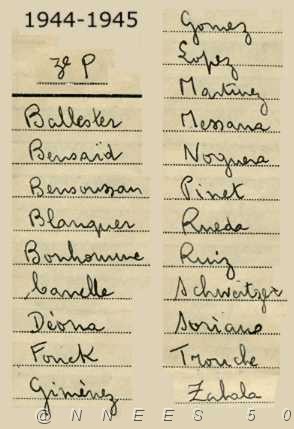 1944-1945
2e P
Ballester
Bensaïd
Bensoussan
Blanquer
Bonhomme
Canelle
Déona
Fonck
Giménez
Gomez
Lopez
Martinez
Messana
Noguera
Pinet
Rueda
Ruiz
Schweitzer
Soriano
Trouche
Zabala
@NNEES 50